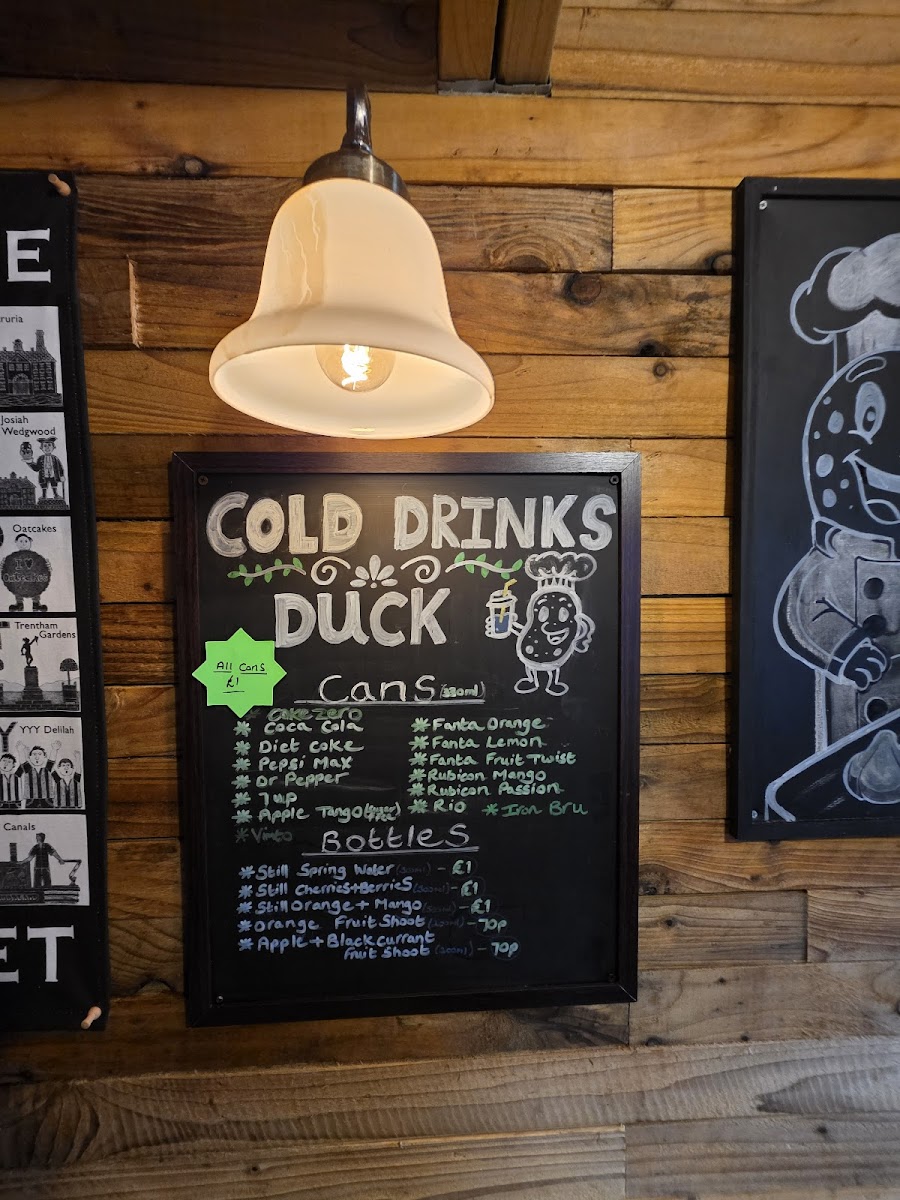 E
ruria
Josiah
Wedgwood
Oatcakes
Trentham
Gardens
YYY Delilah
Canals
ET
COLD DRINKS
DUCK
All Cans
£1
Cans (330ml)
Coke zero
* Coca Cola
* Diet coke
* Pepsi Max
* Dr Pepper
* 7up
* Apple Tango (sugar free)
* Vimto
* Fanta Orange
* Fanta Lemon
* Fanta Fruit Twist
* Rubicon Mango
* Rubicon Passion
* Rio * Iron Bru
Bottles
* Still Spring Water (500ml) - £1
* Still Cherries+Berries (500ml) - £1
* Still Orange + Mango (500ml) - £1
* Orange Fruit Shoot - 70p
* Apple + Blackcurrant
Fruit Shoot - 70p